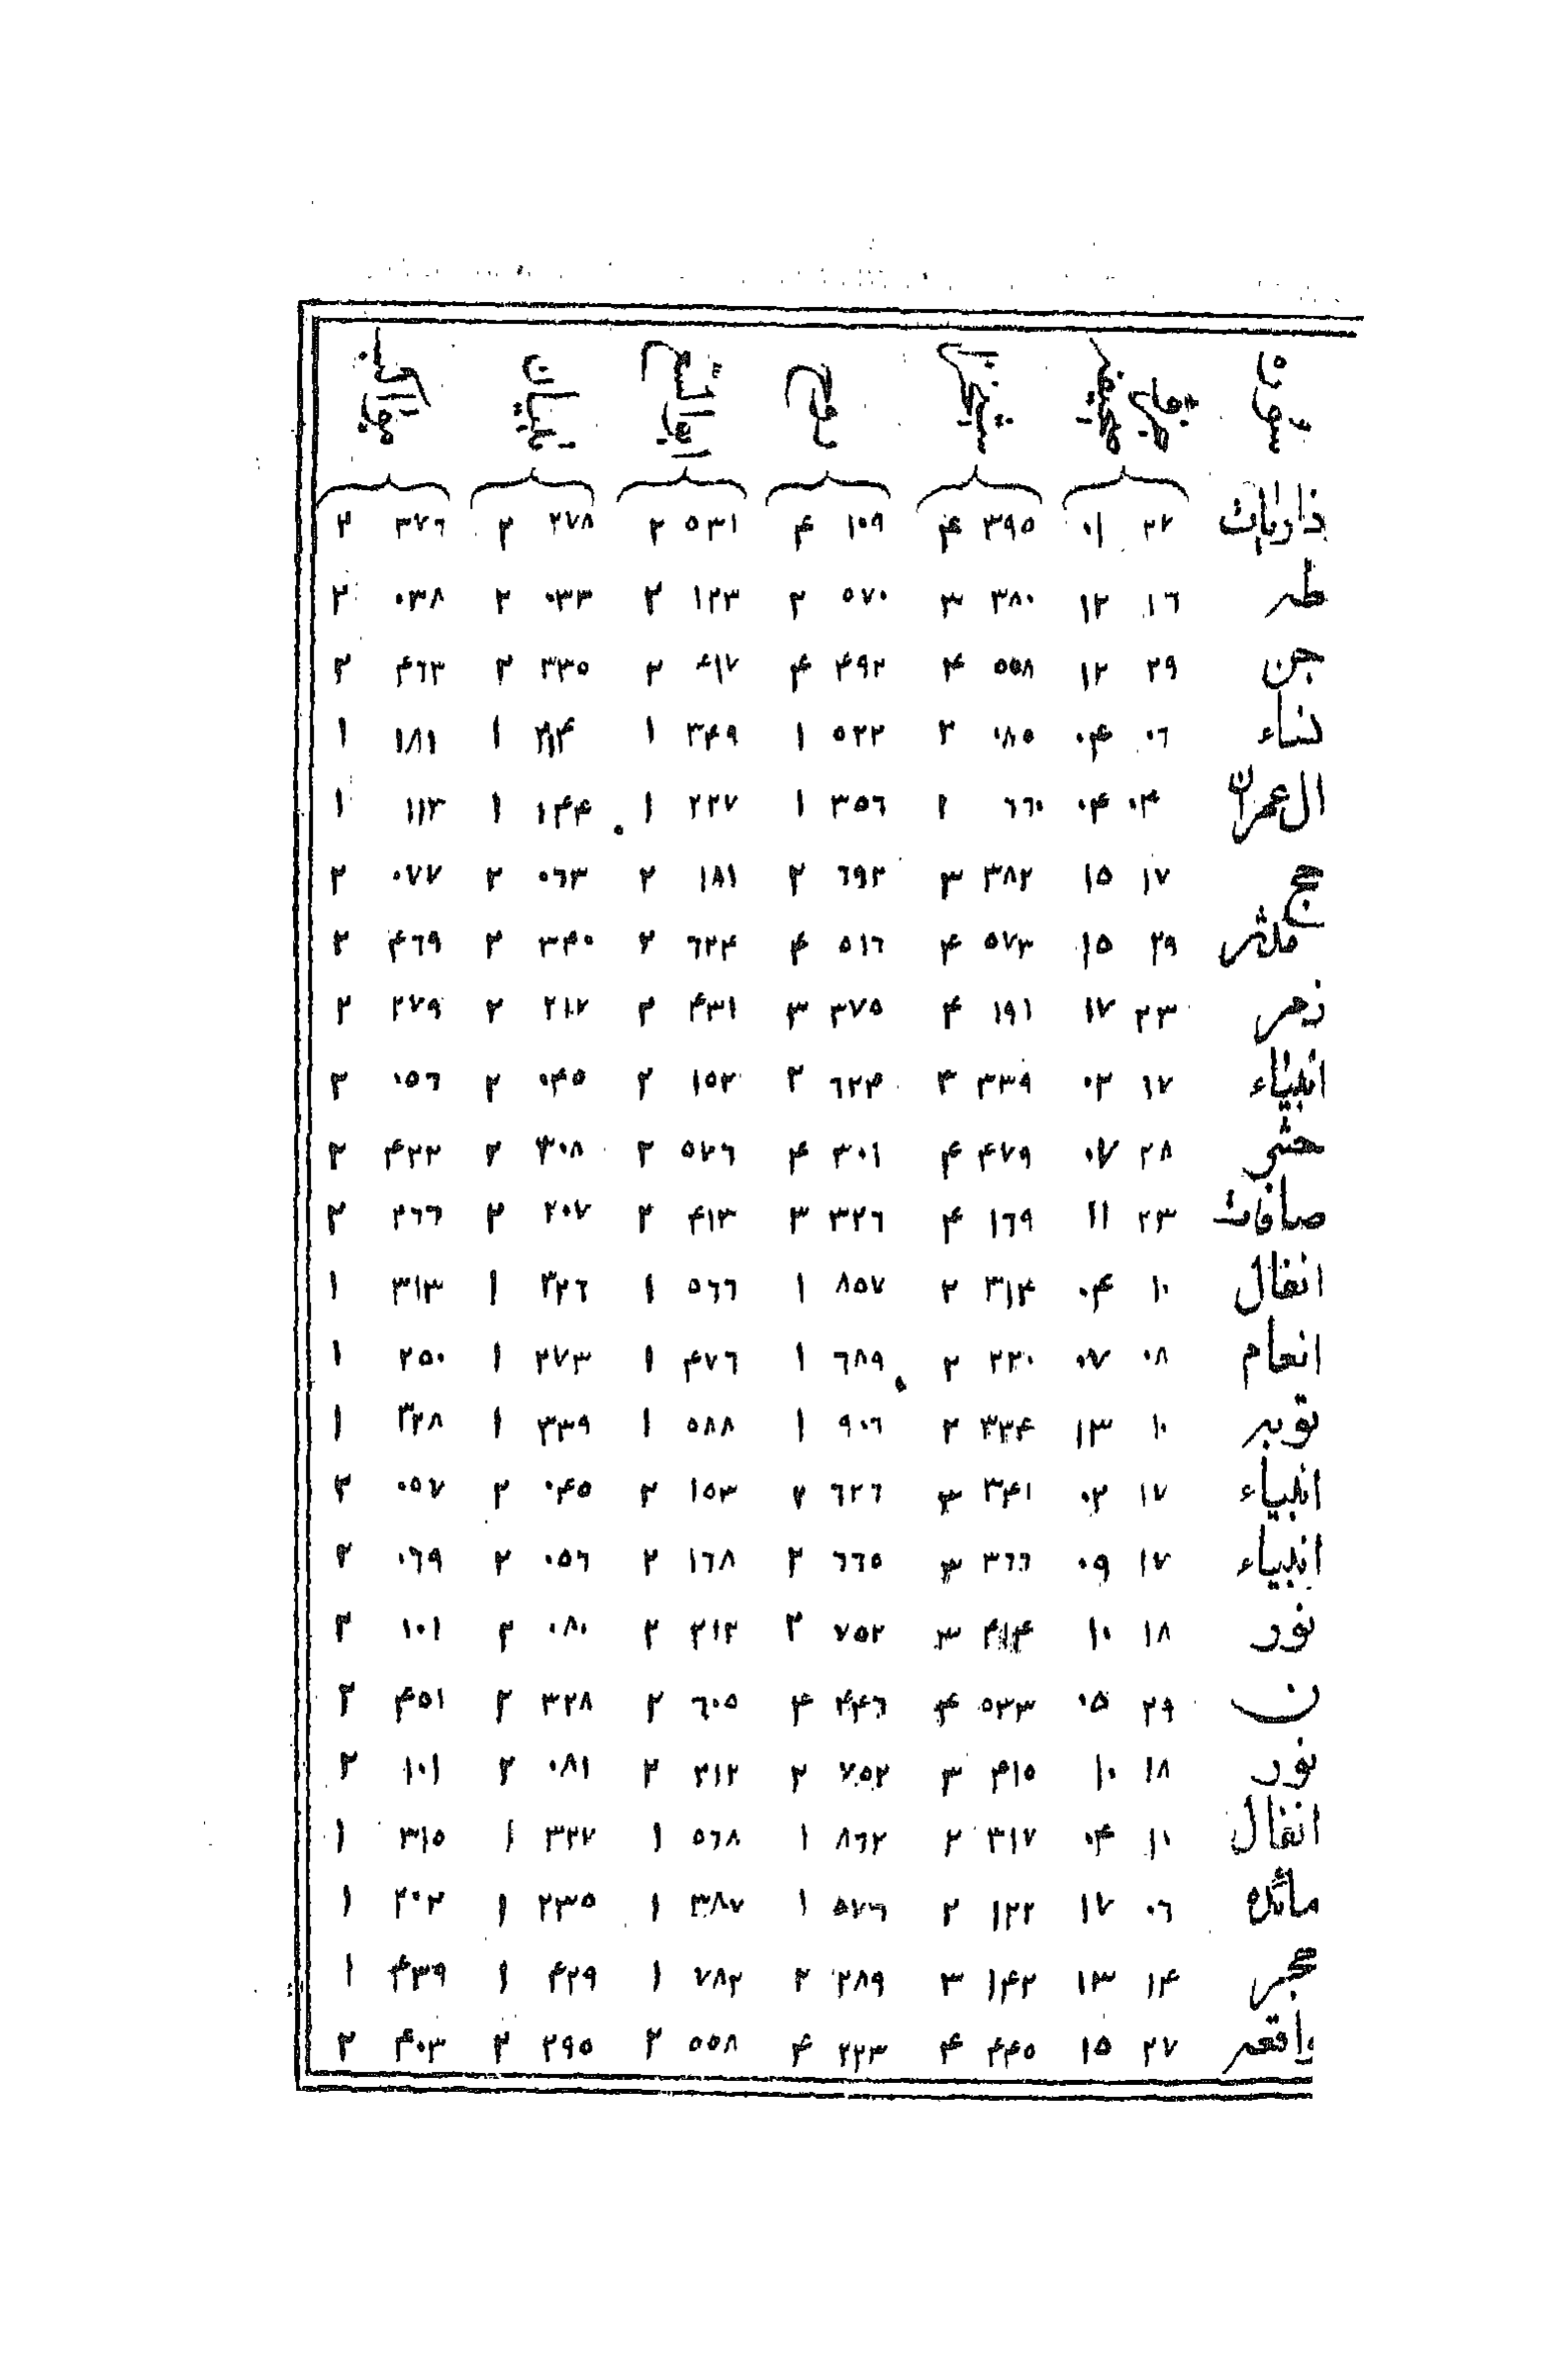 ذاریات ۲۷ ۰۱ ۳۹۵ ۴ ۱۰۹ ۴ ۵۳۱ ۲ ۲۷۸ ۲ ۳۷۶ ۲
طه ۱۶ ۱۲ ۳۸۰ ۳ ۵۷۰ ۲ ۱۲۳ ۲ ۰۳۳ ۲ ۰۳۸ ۲
جن ۲۹ ۱۲ ۵۵۸ ۴ ۴۹۲ ۴ ۲ ۳۳۵ ۲ ۴۶۳ ۲
نساء ۰۶ ۰۴ ۰۸۵ ۲ ۵۲۲ ۱ ۳۴۹ ۱ ۱ ۱۸۱ ۱
ال عمران ۰۴ ۰۴ ۶۶۰ ۱ ۳۵۶ ۱ ۲۲۷ ۱ ۱۴۴ ۱ ۱۱۳ ۱
حج ۱۷ ۱۵ ۳۸۲ ۳ ۶۹۲ ۲ ۱۸۱ ۲ ۰۶۳ ۲ ۰۷۷ ۲
مدثر ۲۹ ۱۵ ۵۷۳ ۴ ۵۱۶ ۴ ۶۲۴ ۲ ۳۴۰ ۲ ۴۶۹ ۲
زمر ۲۳ ۱۷ ۱۹۱ ۴ ۳۷۵ ۳ ۴۳۱ ۲ ۲۱۷ ۲ ۲۷۹ ۲
انبیاء ۱۷ ۰۲ ۳۳۹ ۳ ۶۲۴ ۲ ۱۵۲ ۲ ۰۴۵ ۲ ۰۵۶ ۲
حشر ۲۸ ۰۷ ۴۷۹ ۴ ۳۰۱ ۴ ۵۷۶ ۲ ۳۰۸ ۲ ۴۲۲ ۲
صافات ۲۳ ۱۱ ۱۶۹ ۴ ۳۲۶ ۳ ۴۱۳ ۲ ۲۰۷ ۲ ۲۶۶ ۲
انفال ۱۰ ۰۴ ۳۱۴ ۲ ۸۵۷ ۱ ۵۶۶ ۱ ۳۲۶ ۱ ۳۱۳ ۱
انعام ۰۸ ۰۷ ۲۲۰ ۲ ۶۸۹ ۱ ۴۷۶ ۱ ۲۷۳ ۱ ۲۵۰ ۱
توبه ۱۰ ۱۳ ۳۳۴ ۲ ۹۰۶ ۱ ۵۸۸ ۱ ۳۳۹ ۱ ۳۲۸ ۱
انبیاء ۱۷ ۰۲ ۳۴۱ ۳ ۶۲۶ ۲ ۱۵۳ ۲ ۰۴۵ ۲ ۰۵۷ ۲
انبیاء ۱۷ ۰۹ ۳۶۶ ۳ ۶۶۵ ۲ ۱۶۸ ۲ ۰۵۶ ۲ ۰۶۹ ۲
نور ۱۸ ۱۰ ۴۱۴ ۳ ۷۵۲ ۲ ۲۱۲ ۲ ۰۸۰ ۲ ۱۰۱ ۲
ن ۲۹ ۰۵ ۵۳۳ ۴ ۴۴۶ ۴ ۶۰۵ ۲ ۳۲۸ ۲ ۴۵۱ ۲
نور ۱۸ ۱۰ ۴۱۵ ۳ ۷۵۲ ۲ ۲۱۲ ۲ ۰۸۱ ۲ ۱۰۱ ۲
انفال ۱۰ ۰۴ ۳۱۷ ۲ ۸۶۲ ۱ ۵۶۸ ۱ ۳۲۷ ۱ ۳۱۵ ۱
مائده ۰۶ ۱۷ ۱۲۲ ۲ ۵۷۶ ۱ ۳۸۷ ۱ ۲۳۵ ۱ ۲۰۲ ۱
حجر ۱۴ ۱۳ ۱۴۲ ۳ ۲۸۹ ۲ ۷۸۲ ۱ ۴۲۹ ۱ ۴۳۹ ۱
واقعه ۲۷ ۱۵ ۴۴۵ ۴ ۲۲۳ ۴ ۵۵۸ ۲ ۲۹۵ ۲ ۴۰۳ ۲